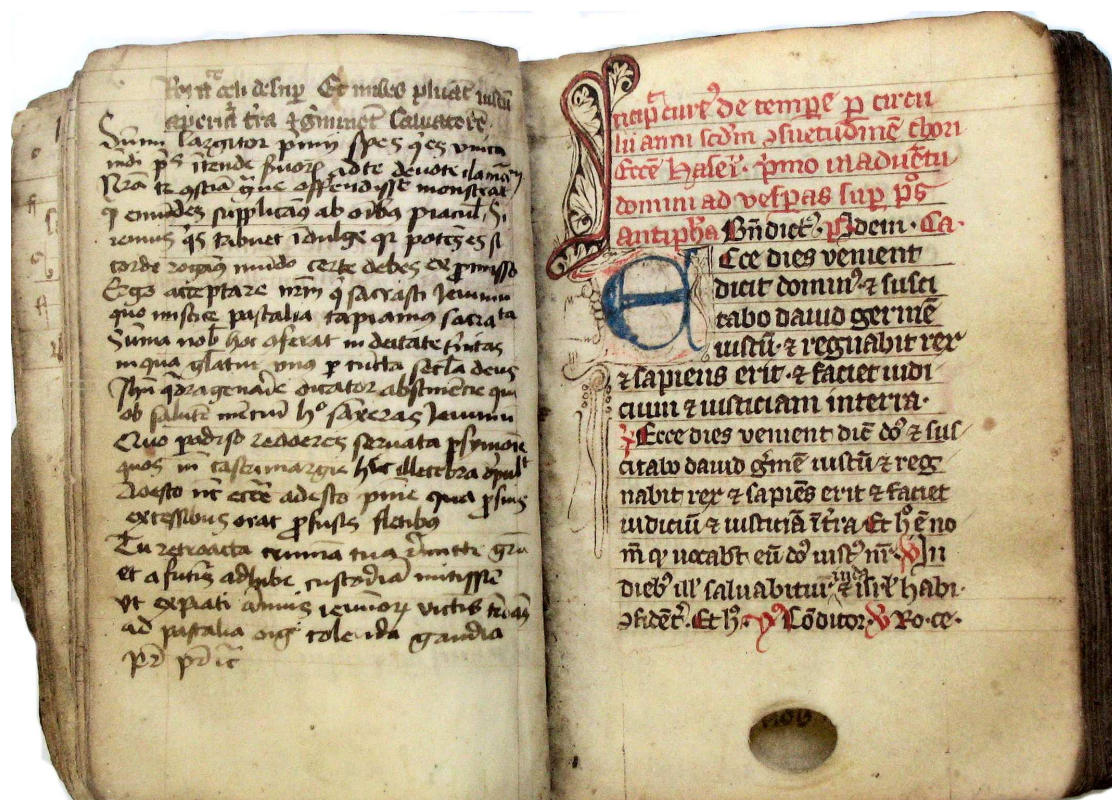 Rorāt celi desup Et nubes pluāt iustū
aperiāt t'ra & g'minet Salvatorē
Sūmi largitor p'mij spes q̄ es unica
mūdi p'ces ītende s'uorꝫ ad te devote clamātiū
Nr̄a te ꝯscia ḡue offendisse monstrat
q̄ emūdes supplicam' ab oīb' piacul' Si
renuis q's t'buet īdulge qr potēs es si
corde rogam' mūdo certe debes ex p'misso
Ergo acceptare nr̄m q̄ sacrasti Jeiuniū
quo mistice pascalia capiamus sacrata
Sūma nob' hoc cōferat in deitate t'nitas
in qua gl'atur unus p cūcta sec'la deus
Jhū q̄dragenarie dicator abstinētie qui
ob salutē mentiū h° sanxeras Jeiuniū
Quo padiso redderes servata p'symonia
quos īn castrimargie huc illecebra depul't
Adesto nc̄ ecc'e adesto pn̄ie qua p suis
excessibus orat p'fusis fletib'
Tu retroacta crimina tua remitte gra
et a futuris adhibe custodiā mitissīe
Ut expiati annuis ieiunorꝫ victis
ad pascalia
pr̄ pr̄ ic̄
Incip̄ cure' de tempe p circu
lū anni scd'm ꝯsuetudinē chori
Eccē Halej. p'mo in adventu
domini ad vesperas sup p's
antipha Bn̄dict'. Ps idem. Ca.
Ecce dies venient
dicit domin' & susci
tabo david germē
iustū. & regnabit rex
& sapiens erit. & faciet iudi
cium & iusticiam in terra.
R Ecce dies venient dic̄ do' & sus
citabo david g'mē iustū & reg
nabit rex & sapiēs erit & faciet
iudiciū & iusticiā ī t'ra Et h° ē no
m̄ q' vocabt eū do' iust' nr̄. V In
dieb' ill' salvabitur iuda & isrl' habi.
ꝯfidēt'. Et h°. Y Cōditor. V Ro. ce.